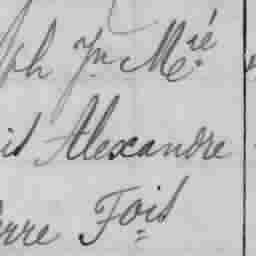 ph Jn M.ié
it Alexandre
erre Foit